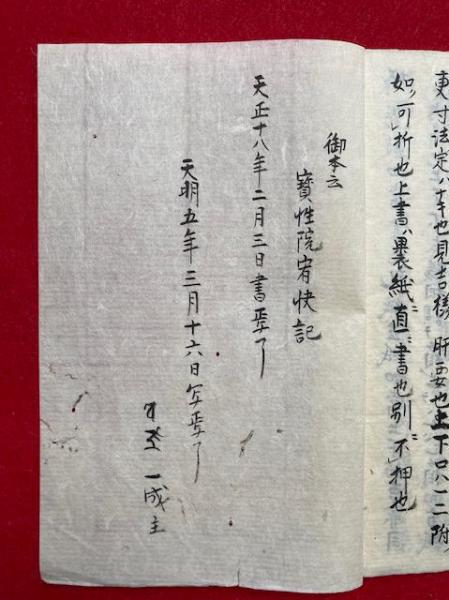 更寸法定八寸也見吉様肝要也上下口ハ一二附
如可折也上書ハ裹紙直書也別不押也
御本云
寶性院宥快記
天正十八年二月三日書写了
天明五年三月十六日写写了
一成主